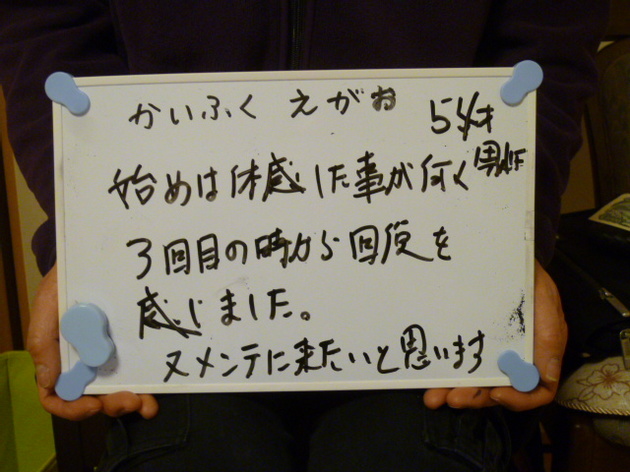 かいふく えがお
54才
男性
始めは体感した事が何く
3回目の時から回復を
感じました。
又メンテに来たいと思います